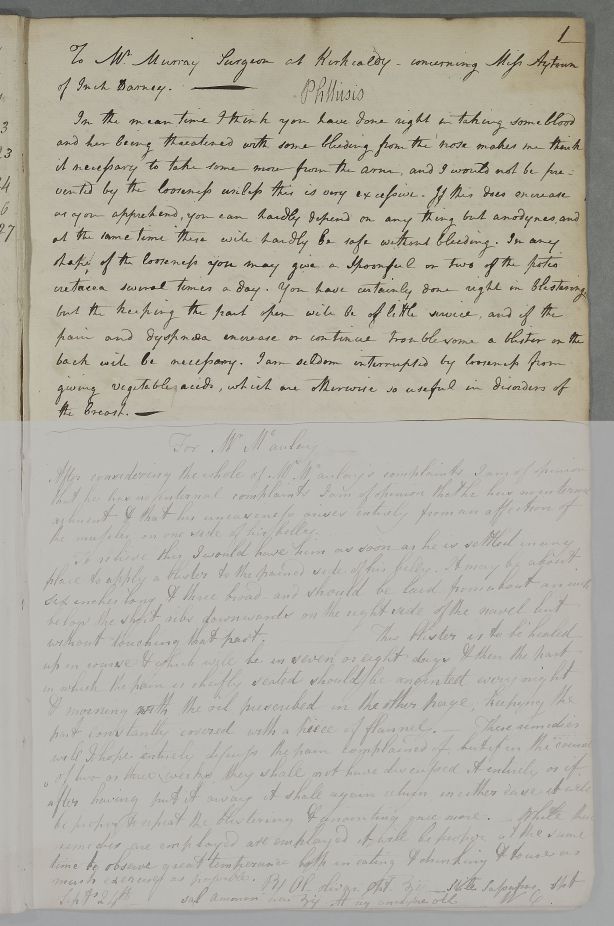 1
To Mr. Murray Surgeon at Kirkcaldy - concerning Miss Aytoun
of Inch Darney. —
Phthisis
In the mean time I think you have done right in taking some blood
and her being threatened with some bleeding from the nose makes me think
it necessary to take some more from the arm, and I would not be pre-
vented by the looseness unless this is very excessive. If this does encrease
as you apprehend, you can hardly depend on any thing but anodynes, and
at the same time these will hardly be safe without bleeding. In any
shape, of the looseness you may give a Spoonful or two of the potio
cretacea several times a day. You have certainly done right in Blistering
but the keeping the part open will be of little service, and if the
pain and dyspnœa increase or continue troublesome a blister on the
back will be necessary. I am seldom interrupted by looseness from
giving vegetable acids, which are otherwise so useful in disorders of
the breast. —
For Mr. McAulay
After considering the whole of Mr. McAulay's complaints I am of opinion
that he has no internal complaints I am of opinion that he has no internal
ailment & that his uneasiness arises entirely from an affection of
the muscles on one side of his belly.
To relieve this I would have him as soon as he is settled in any
place to apply a blister to the pained side of his belly. It may be about
six inches long & three broad and should be laid from about an inch
below the short ribs downwards on the right side of the navel but
without touching that part. This blister is to be healed
up in course & which will be in seven or eight days & then the part
in which the pain is chiefly seated should be anointed every night
& morning with the oil prescribed in the other page, keeping the
part constantly covered with a piece of flannel. — These remedies
will I hope entirely dissipate the pain complained of but if in the course
of two or three weeks they shall not have discussed it entirely or if
after having put it away it shall again return in either case it will
be proper to repeat the blistering & anointing once more. — While these
remedies are employed are employed it will be proper at the same
time to observe great temperance both in eating & drinking & to use as
much exercise as possible.
Sept 24th
W C.